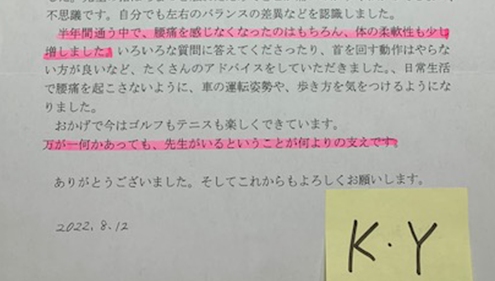 不思議です。自分でも左右のバランスの差異などを認識しました。
半年間通う中で、腰痛を感じなくなったのはもちろん、体の柔軟性も少し
増しました。いろいろな質問に答えてくださったり、首を回す動作はやらな
い方が良いなど、たくさんのアドバイスをしていただきました。、日常生活
で腰痛を起こさないように、車の運転姿勢や、歩き方を気をつけるようにな
りました。
おかげで今はゴルフもテニスも楽しくできています。
万が一何かあっても、先生がいるということが何よりの支えです。
ありがとうございました。そしてこれからもよろしくお願いします。
2022.8.12
K.Y